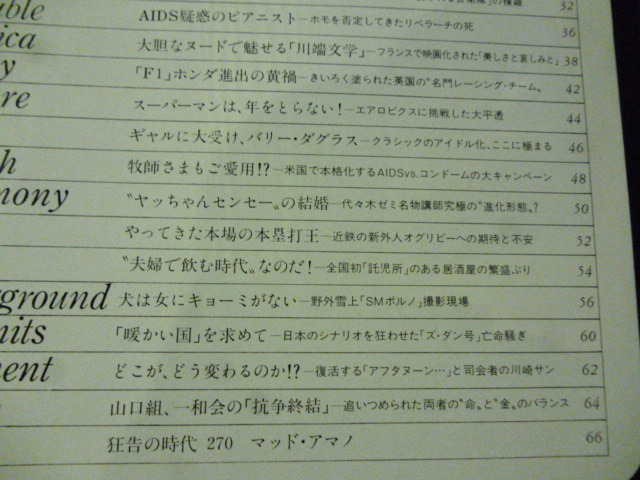 able
」の複雑 32
AIDS疑惑のピアニスト—ホモを否定してきたリベラーチの死 36
ica
大胆なヌードで魅せる「川端文学」—フランスで映画化された「美しさと哀しみと」 38
y
「F1」ホンダ進出の黄禍—きいろく塗られた英国の〝名門レーシング・チーム〟 42
re
スーパーマンは、年をとらない!—エアロビクスに挑戦した大平透 44
ギャルに大受け、バリー・ダグラス—クラシックのアイドル化、ここに極まる 46
h
牧師さまもご愛用!?—米国で本格化するAIDSvs.コンドームの大キャンペーン 48
mony
〝ヤッちゃんセンセー〟の結婚—代々木ゼミ名物講師究極の〝進化形態〟? 50
やってきた本場の本塁打王—近鉄の新外人オグリビーへの期待と不安 52
〝夫婦で飲む時代〟なのだ!—全国初「託児所」のある居酒屋の繁盛ぶり 54
rground
犬は女にキョーミがない—野外雪上「SMポルノ」撮影現場 56
mits
「暖かい国」を求めて—日本のシナリオを狂わせた「ズ・ダン号」亡命騒ぎ 60
ment
どこが、どう変わるのか!?—復活する「アフタヌーン…」と司会者の川崎サン 62
山口組、一和会の「抗争終結」—追いつめられた両者の〝命〟と〝金〟のバランス 64
狂告の時代 270 マッド・アマノ 66